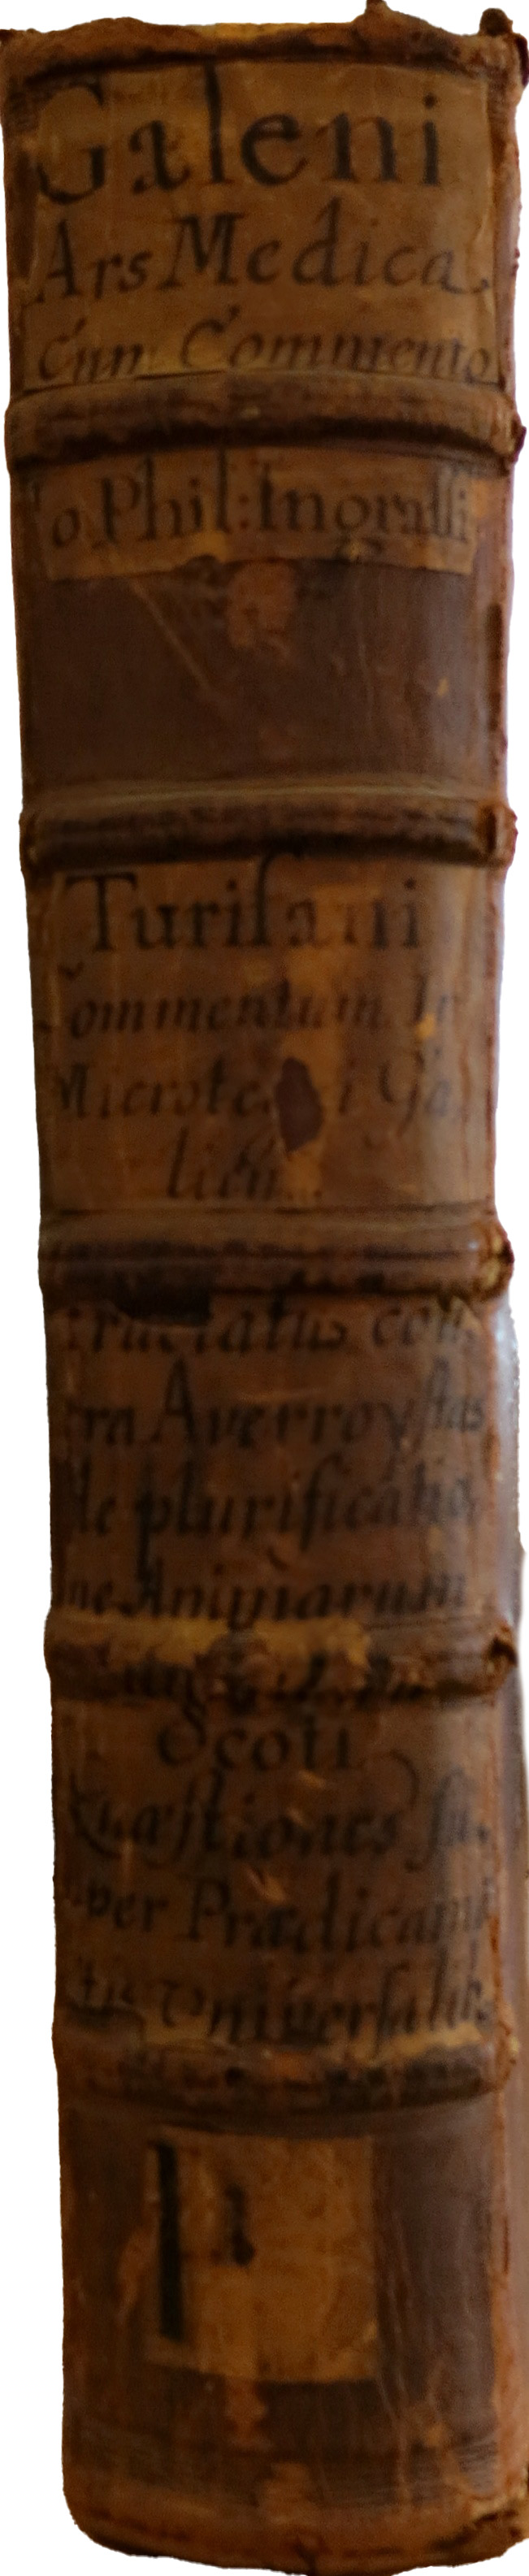 Galeni
Ars Medica
Cum Commento
o. Phil: Ingrassi
Turisani
Commentum In
Microtegni Ga
lieni
Tractatus con
tra Averroystas
de plurificatio
ne Animarum
Scoti
Quæstiones su
per Prædicam
tis Universalib